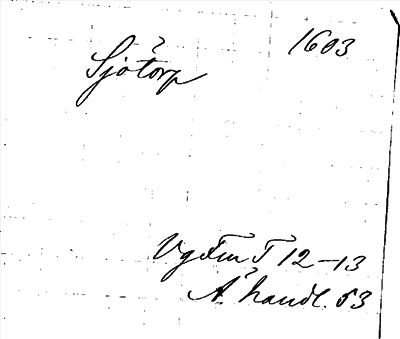 Sjötorp 1603
VgFmT 12-13
Å. handl. 53